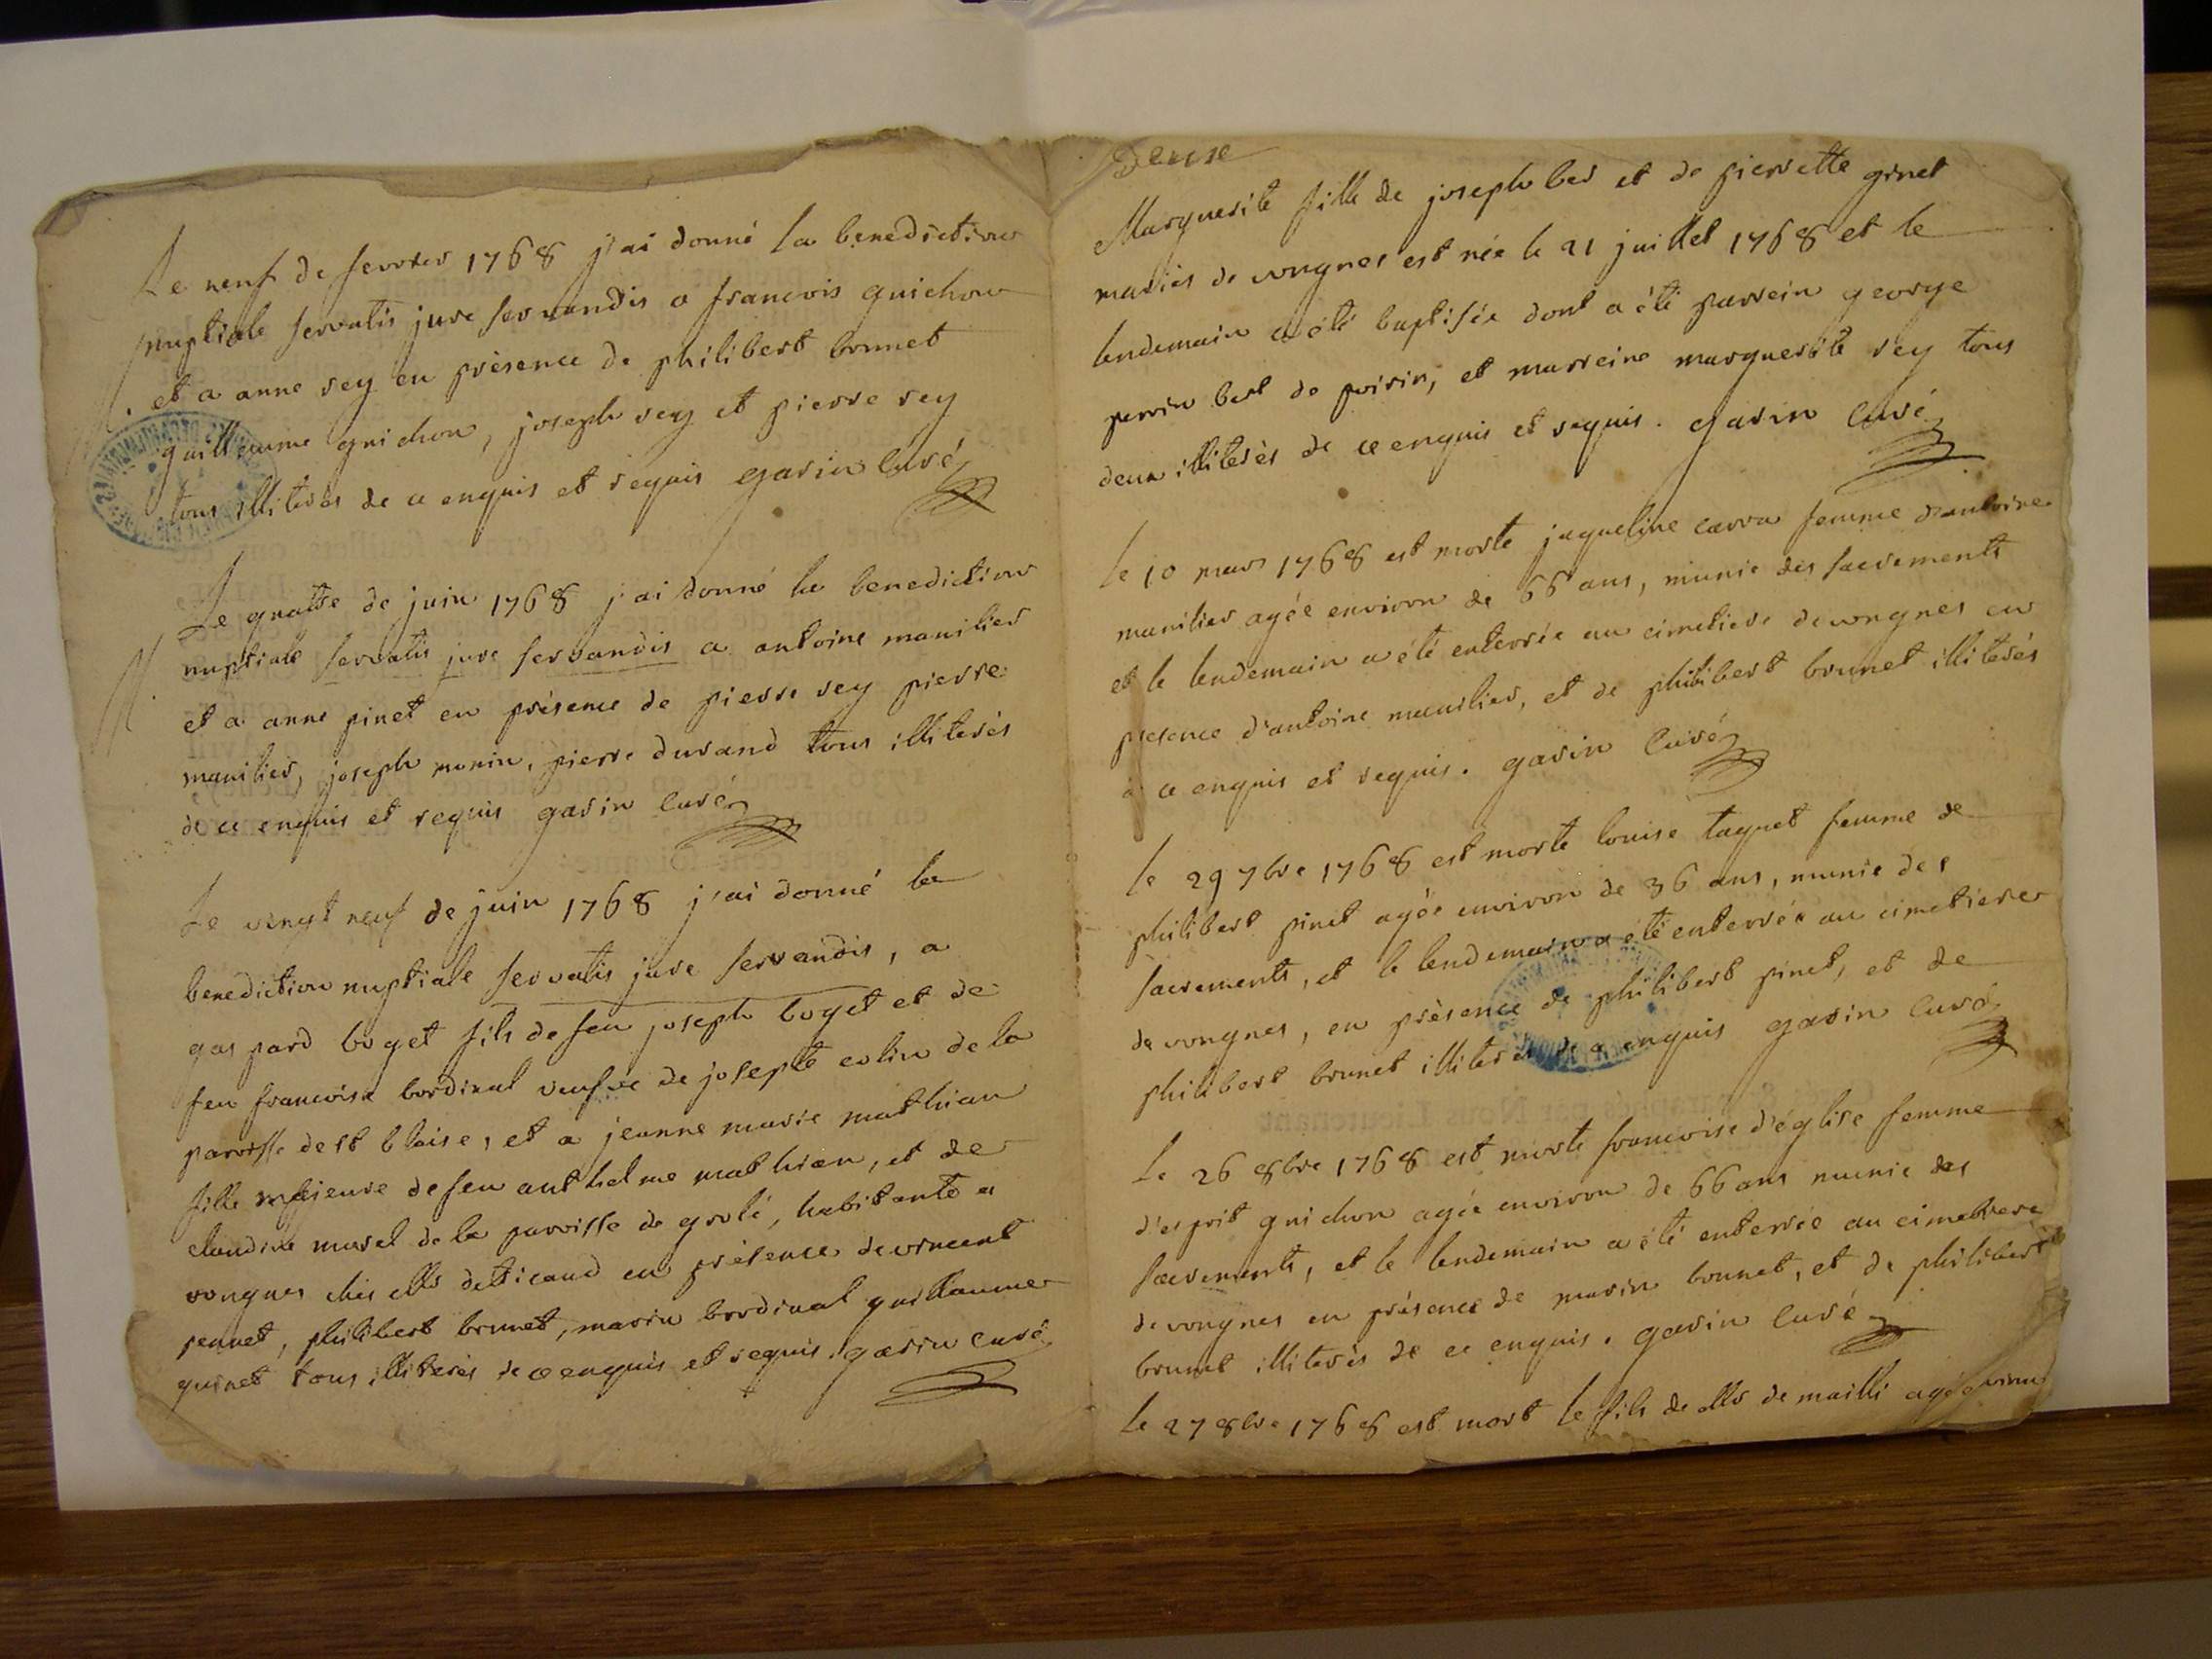 Le neuf de fevrier 1768 j'ai donné la benediction
nuptiale servatis jure servandis a francois guichon
et a anne rey en présence de philibert brunet
guillaume guichon, joseph rey et pierre rey
tous illiterés de ce enquis et requis garin curé
Le quatre de juin 1768 j'ai donné la benediction
nuptiale servatis jure servandis a antoine manilier
et a anne pinet en présence de pierre rey pierre
manilier, joseph monin, pierre durand tous illiterés
de ce enquis et requis garin curé
Le vingt neuf de juin 1768 j'ai donné la
benediction nuptiale servatis jure servandis, a
gaspard boget fils de feu joseph boget et de
feu francoise bordinal veufve de josepte colin de la
paroisse de st blaise, et a jeanne marie mathian
fille majeure de feu anthelme mathian, et de
claudine murel de la parroisse de grolé, habitante a
vongnes chés en présence de vincent
pennet, philibert brunet, marin bordinal guillaume
guinet tous illiterés de ce enquis et requis. garin curé
Deuse
Marguerite fille de joseph ber et de pierrette ginet
mariés de vongnes est née le 21 juillet 1768 et le
lendemain a été baptisée dont a été parrein george
perrin bert de poirin, et marreine marguerite rey tous
deux illiterés de ce enquis et requis. garin curé
le 10 mars 1768 est morte jaqueline carra femme d'antoine
manilier agée environ de 66 ans, munie des sacrements
et le lendemain a été enterrée au cimetiere de vongnes en
presence d'antoine manilier, et de philibert brunet illiterés
de ce enquis et requis. garin curé
le 29 7bre 1768 est morte louise taquet femme de
philibert pinet agée environ de 36 ans, munie des
sacrements, et le lendemain a été enterrée au cimetiere
de vongnes, en présence de philibert pinet, et de
philibert brunet illiterés de ce enquis garin curé
Le 26 8bre 1768 est morte francoise d'église femme
d'esprit guichon agée environ de 66 ans munie des
sacrements, et le lendemain a été enterrée au cimetiere
de vongnes en présence de marin bonnet, et de philibert
brunet illiterés de ce enquis. garin curé
le 27 8bre 1768 est mort le fils de de mailli agé